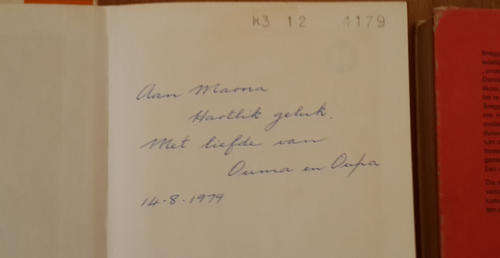 K3 12 4179
Aan Marna
Hartlik geluk.
Met liefde van
Ouma en Oupa
14-8-1979